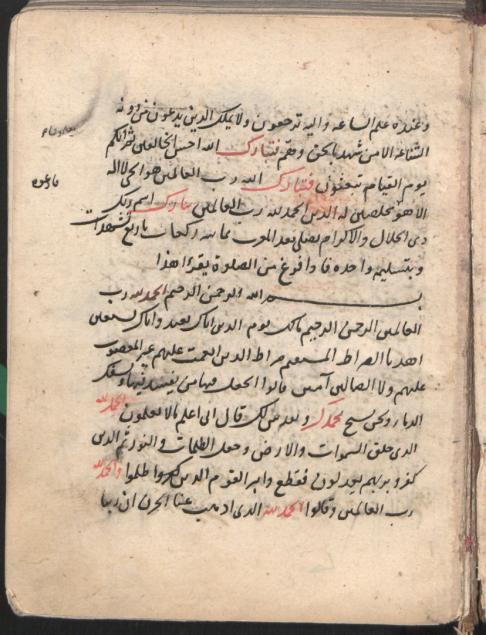 وعنده علم الساعه واليه ترجعون ولا يملك الذين يدعون من دونه
الشفاعه الا من شهد بالحق وهم فتبارك الله احسن الخالقين ثم انكم
يوم القيامه تبعثون فتبارك الله رب العالمين هو الحى لا اله
الا هو مخلصين له الدين الحمد لله رب العالمين تبارك اسم ربك
ذى الجلال والاكرام يصلى بعد المغرب ثمانيه ركعات باربع تشهدات
وبتسليمه واحده فاذا فرغ من الصلوة يقرء هذا
بسم الله الرحمن الرحيم الحمد لله رب
العالمين الرحمن الرحيم مالك يوم الدين اياك نعبد واياك نستعين
اهدنا الصراط المستقيم صراط الذين انعمت عليهم غير المغضوب
عليهم ولا الضالين آمين قالوا اتجعل فيها من يفسد فيها ويسفك
الدماء ونحن نسبح بحمدك ونقدس لك قال انى اعلم ما لا تعلمون الحمد لله
الذى خلق السموات والارض وجعل الظلمات والنور ثم الذين
كفروا بربهم يعدلون فقطع دابر القوم الذين ظلموا والحمد لله
رب العالمين وقالوا الحمد لله الذى اذهب عنا الحزن ان ربنا